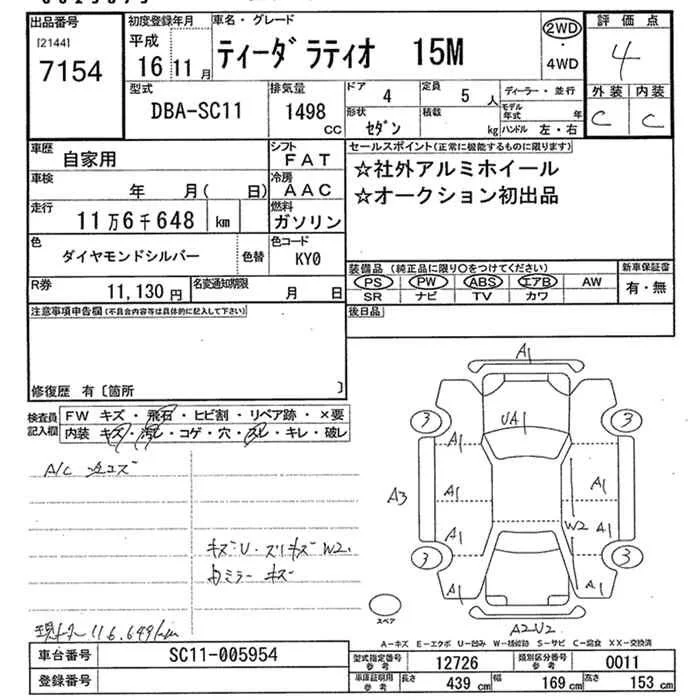 出品番号 初度登録年月 車名・グレード 2WD 評価点
[2144] 平成 ティーダラティオ 15M ・ 4
7154 16 年 11 月 4WD
型式 排気量 ドア 定員 ディーラー・並行 外装 内装
DBA-SC11 1498 CC 4 5 人 モデル年式 年 C C
形状 セダン 積載 kg ハンドル 左・右
車歴 自家用 シフト FAT セールスポイント(正常に機能するものに限ります)
車検 年 月( 日) 冷房 AAC ☆社外アルミホイール
走行 11万6千648 km 燃料 ガソリン ☆オークション初出品
色 ダイヤモンドシルバー 色替 色コード KY0
装備品 (純正品に限り○をつけてください) 新車保証書
PS PW ABS エアB AW 有・無
SR ナビ TV カワ
R券 11,130 円 名変通知期限 月 日
注意事項申告欄(不具合内容等は具体的に記入して下さい) 後日品
修復歴 有 〔箇所 〕
検査員記入欄 FW キズ・飛石・ヒビ割・リペア跡・×要
内装 キズ・汚レ・コゲ・穴・スレ・キレ・破レ
A/C
キズU・スリキズ W2.
ミラー キズ
116,649km
A1
3 3
UA1
A1 A1
A3 A1 A1
W2
A1 A1
3 3
A1 A1
スペア A2U2
A-キズ E-エクボ U-凹み W-補修跡 S-サビ C-腐食 XX-交換済
車台番号 SC11-005954 型式指定番号参考 12726 類別区分番号参考 0011
登録番号 車庫証明用参考 長さ 439 cm 幅 169 cm 高さ 153 cm